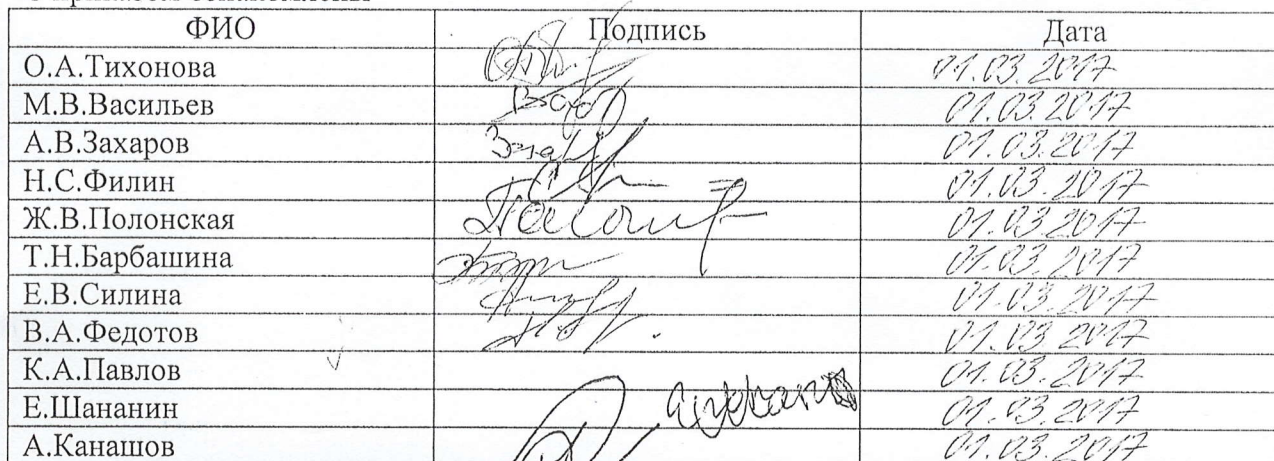 ФИО Подпись Дата
О.А.Тихонова 01.03.2017
М.В.Васильев 01.03.2017
А.В.Захаров 01.03.2017
Н.С.Филин 01.03.2017
Ж.В.Полонская 01.03.2017
Т.Н.Барбашина 01.03.2017
Е.В.Силина 01.03.2017
В.А.Федотов 01.03.2017
К.А.Павлов 01.03.2017
Е.Шананин 01.03.2017
А.Канашов 01.03.2017